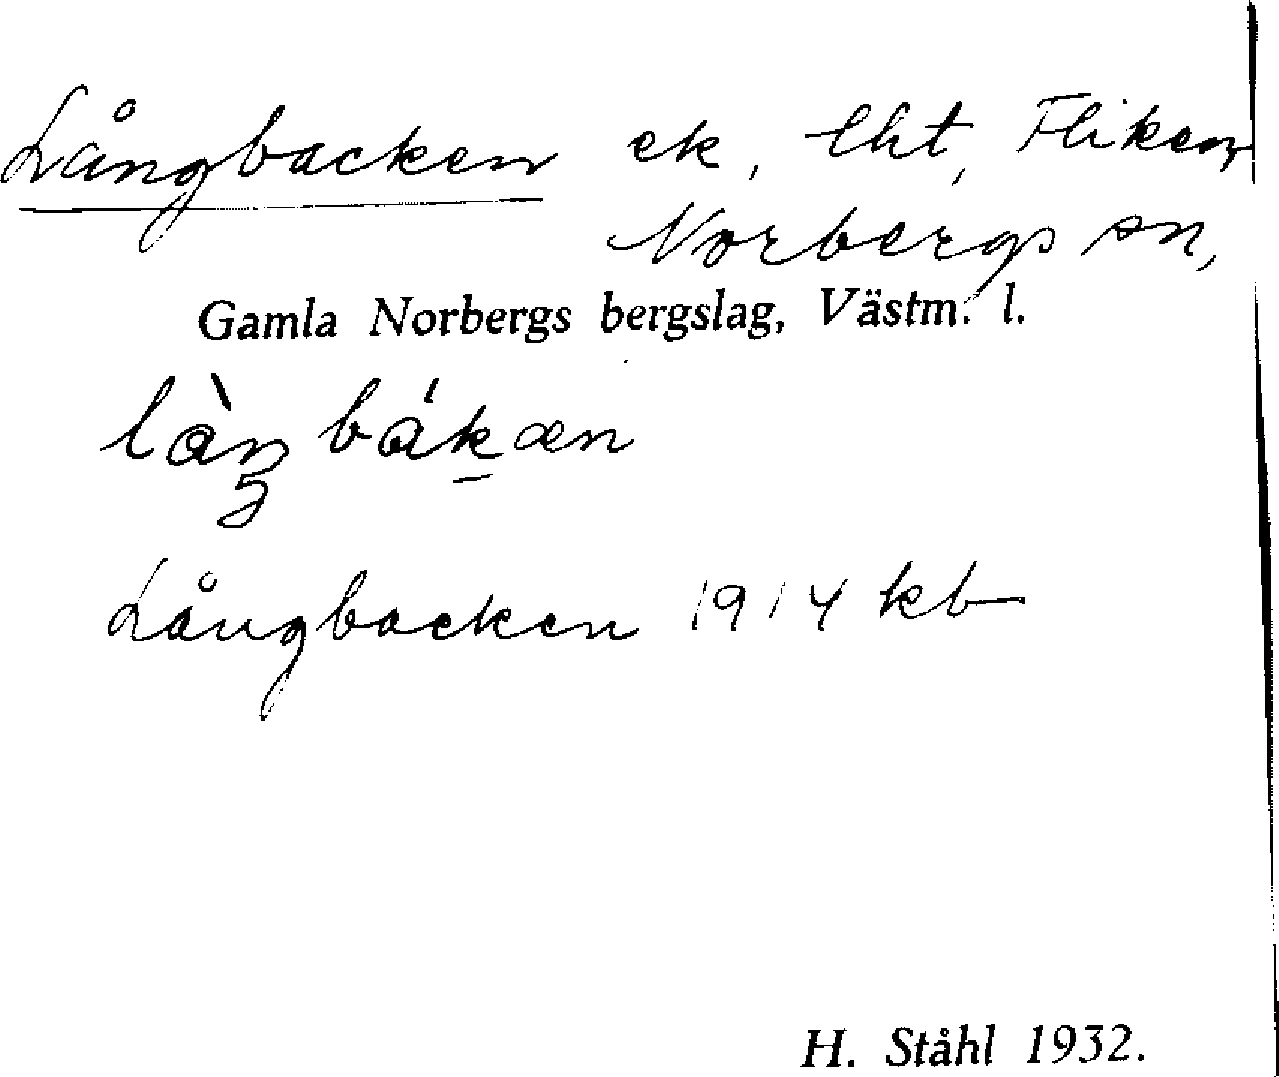 Långbacken ek, lht, Fliken,
Norbergs sn,
Gamla Norbergs bergslag, Västm. l.
làŋbákæn
Långbacken 1914 kb
H. Ståhl 1932.